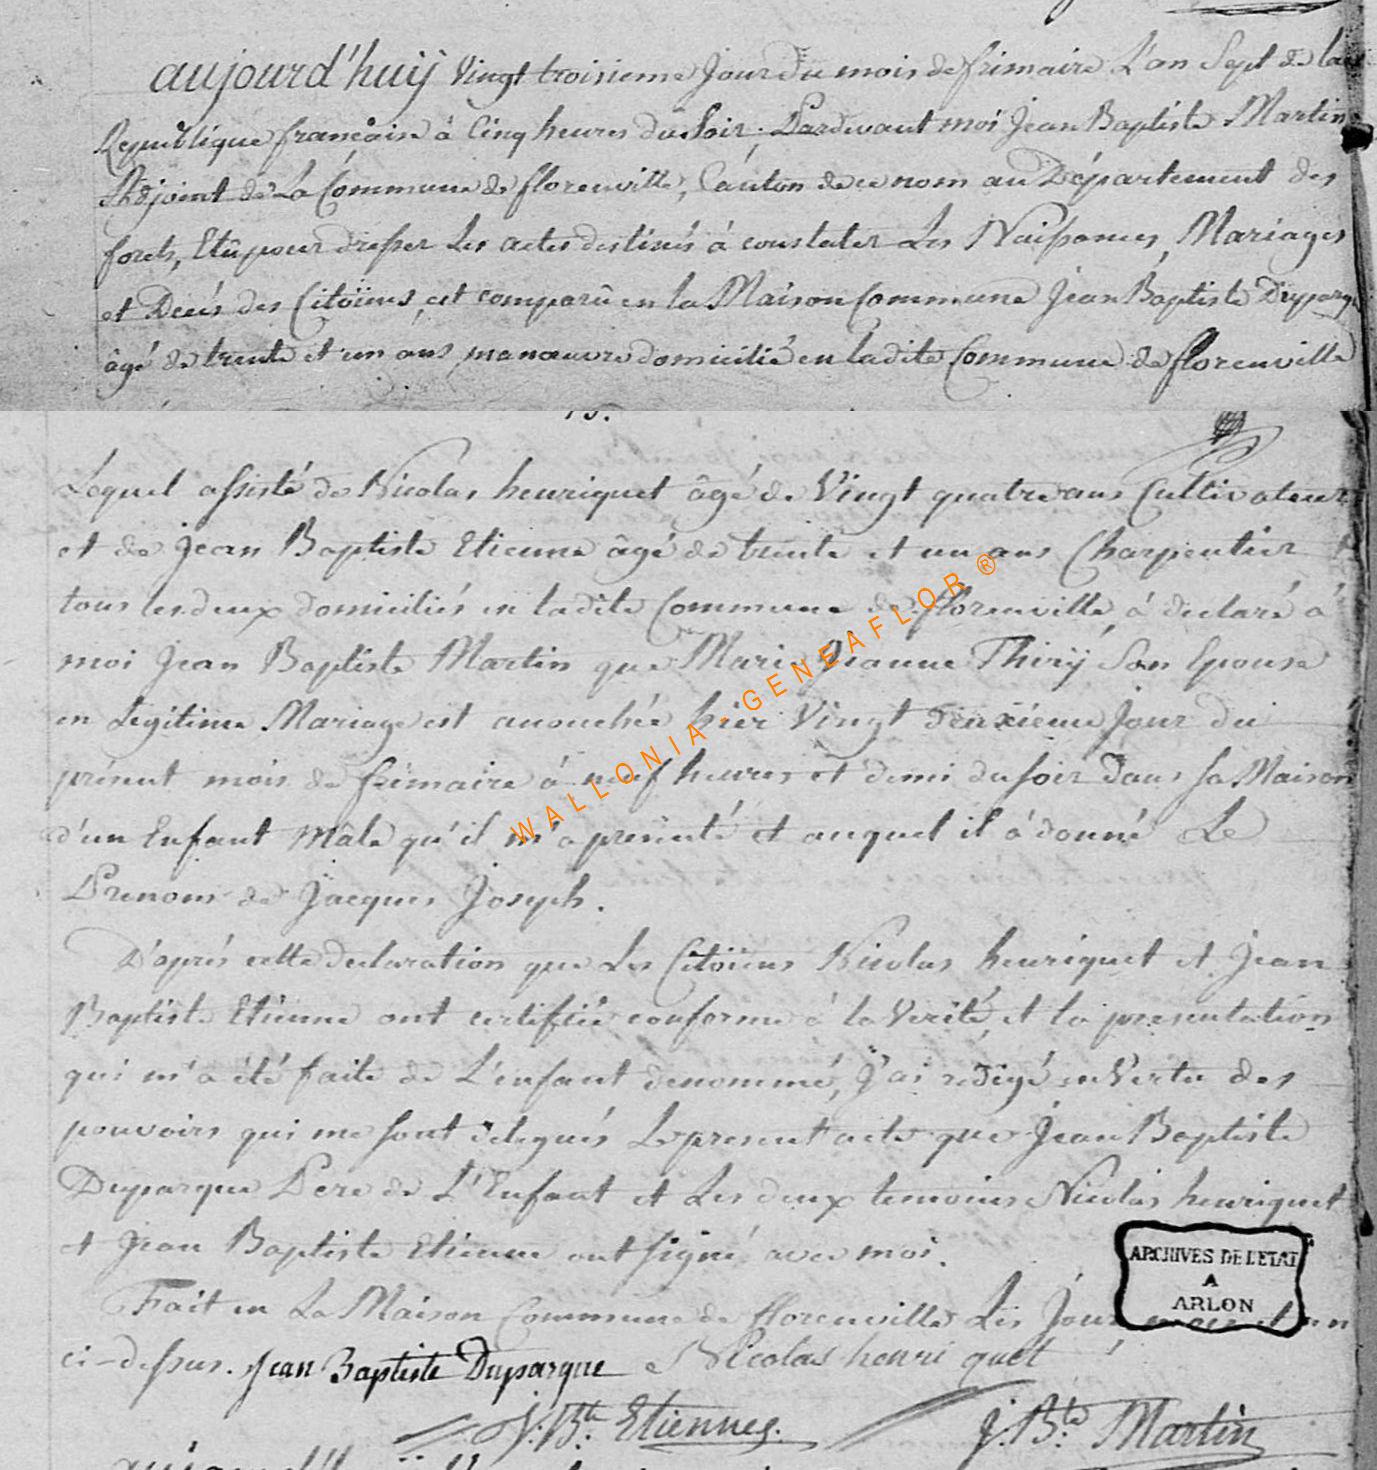 aujourd'huÿ Vingt troisieme Jour du mois de frimaire L'an Sept de la
Republique francaise à Cinq heures du Soir, Pardevant moi Jean Baptiste Martin
Adjoint de La Commune de florenville, Canton de ce nom au Département des
forets, Elû pour dresser Les actes destinés à constater Les Naissances, Mariages
et Decés des Citoïens, est comparû en la Maison Commune Jean Baptiste Duparque
âgé de trente et un ans manœuvre domicilié en ladite Commune de florenville
Lequel assisté de Nicolas henriquet âgé de Vingt quatre ans Cultivateur
et de Jean Baptiste Etienne âgé de trente et un ans Charpentier
tous les deux domiciliés en ladite Commune de florenville, à declaré à
moi Jean Baptiste Martin que Marie Jeanne Thirÿ Son Epouse
en Legitime Mariage est accouchée hier Vingt deuxieme Jour du
présent mois de frimaire à neuf heures et demi du soir dans sa Maison
d'un Enfant Mâle qu'il m'a presenté et auquel il à donné Le
Prenom de Jacques Joseph.
D'après cette declaration que Les Citoïens Nicolas henriquet et Jean
Baptiste Etienne ont certifiée conforme à la Verité, et la presentation
qui m'a été faite de L'enfant denommé, J'ai rédigé en Vertu des
pouvoirs qui me sont delegués Le present acte que Jean Baptiste
Duparque Pere de L'Enfant et Les deux temoins Nicolas henriquet
et Jean Baptiste Etienne ont signé avec moi.
Fait en La Maison Commune de florenville Les Jour, mois et an
ci-dessus. Jean Baptiste Duparque Nicolas henri quet
J. Bte. Etiennes. J. Bte Martin
WALLONIA - GENEAFLOR ®
ARCHIVES DE L'ETAT
A
ARLON